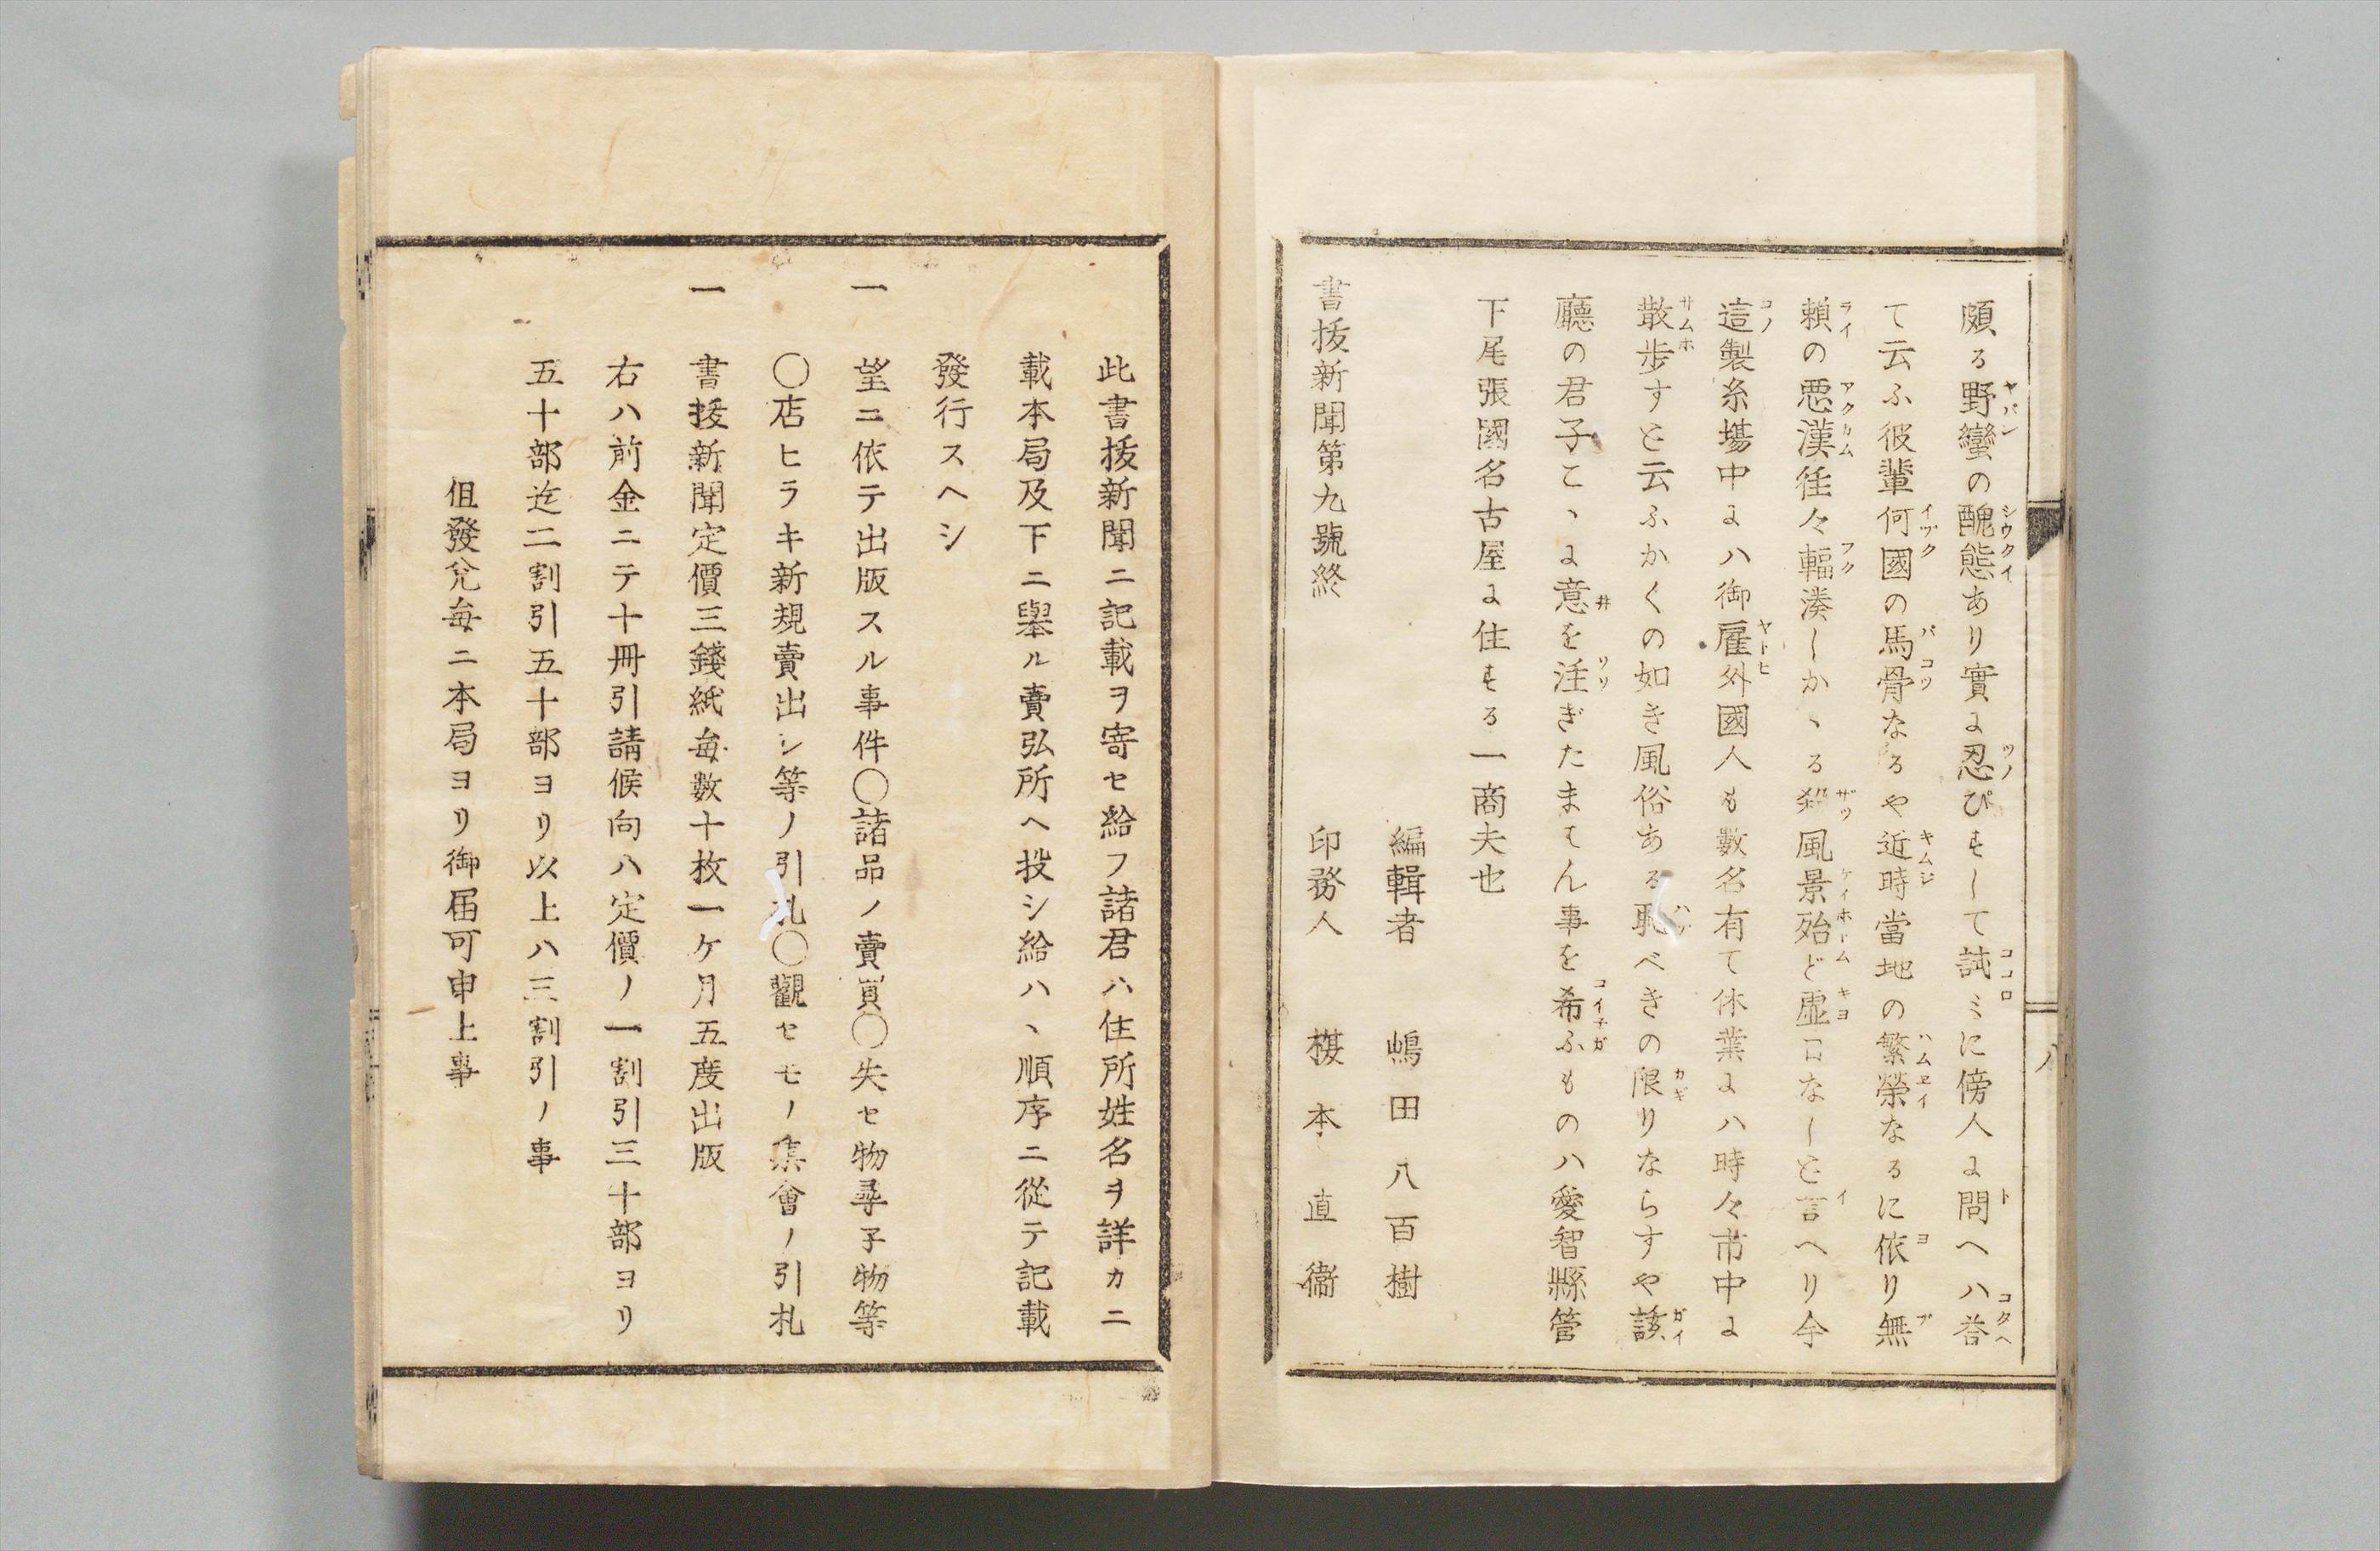 頗る野蠻の醜態あり實に忍びずして試ミに傍人に問へハ答
て云ふ彼輩何國の馬骨なるや近時當地の繁榮なるに依り無
頼の悪漢徃々輻湊しかゝる殺風景殆ど虚日なしと言へり今
這製糸塲中にハ御雇外國人も數名有て休業にハ時々市中に
散歩すと云ふかくの如き風俗ある恥べきの限りならすや該
廳の君子こゝに意を注ぎたまはん事を希ふものハ愛智縣管
下尾張國名古屋に住する一商夫也
編輯者 嶋田八百樹
書抜新聞第九號終 印務人 榠本直衞
八
此書抜新聞ニ記載ヲ寄セ給フ諸君ハ住所姓名ヲ詳カニ
載本局及下ニ舉ル賣弘所ヘ投シ給ハヽ順序ニ從テ記載
發行スヘシ
一 望ニ依テ出版スル事件〇諸品ノ賣買〇失セ物尋子物等
〇店ヒラキ新規賣出シ等ノ引札〇觀セモノ集會ノ引札
一 書抜新聞定價三錢紙毎數十枚一ケ月五度出版
右ハ前金ニテ十冊引請候向ハ定價ノ一割引三十部ヨリ
五十部迄二割引五十部ヨリ以上ハ三割引ノ事
伹發兌毎ニ本局ヨリ御届可申上事